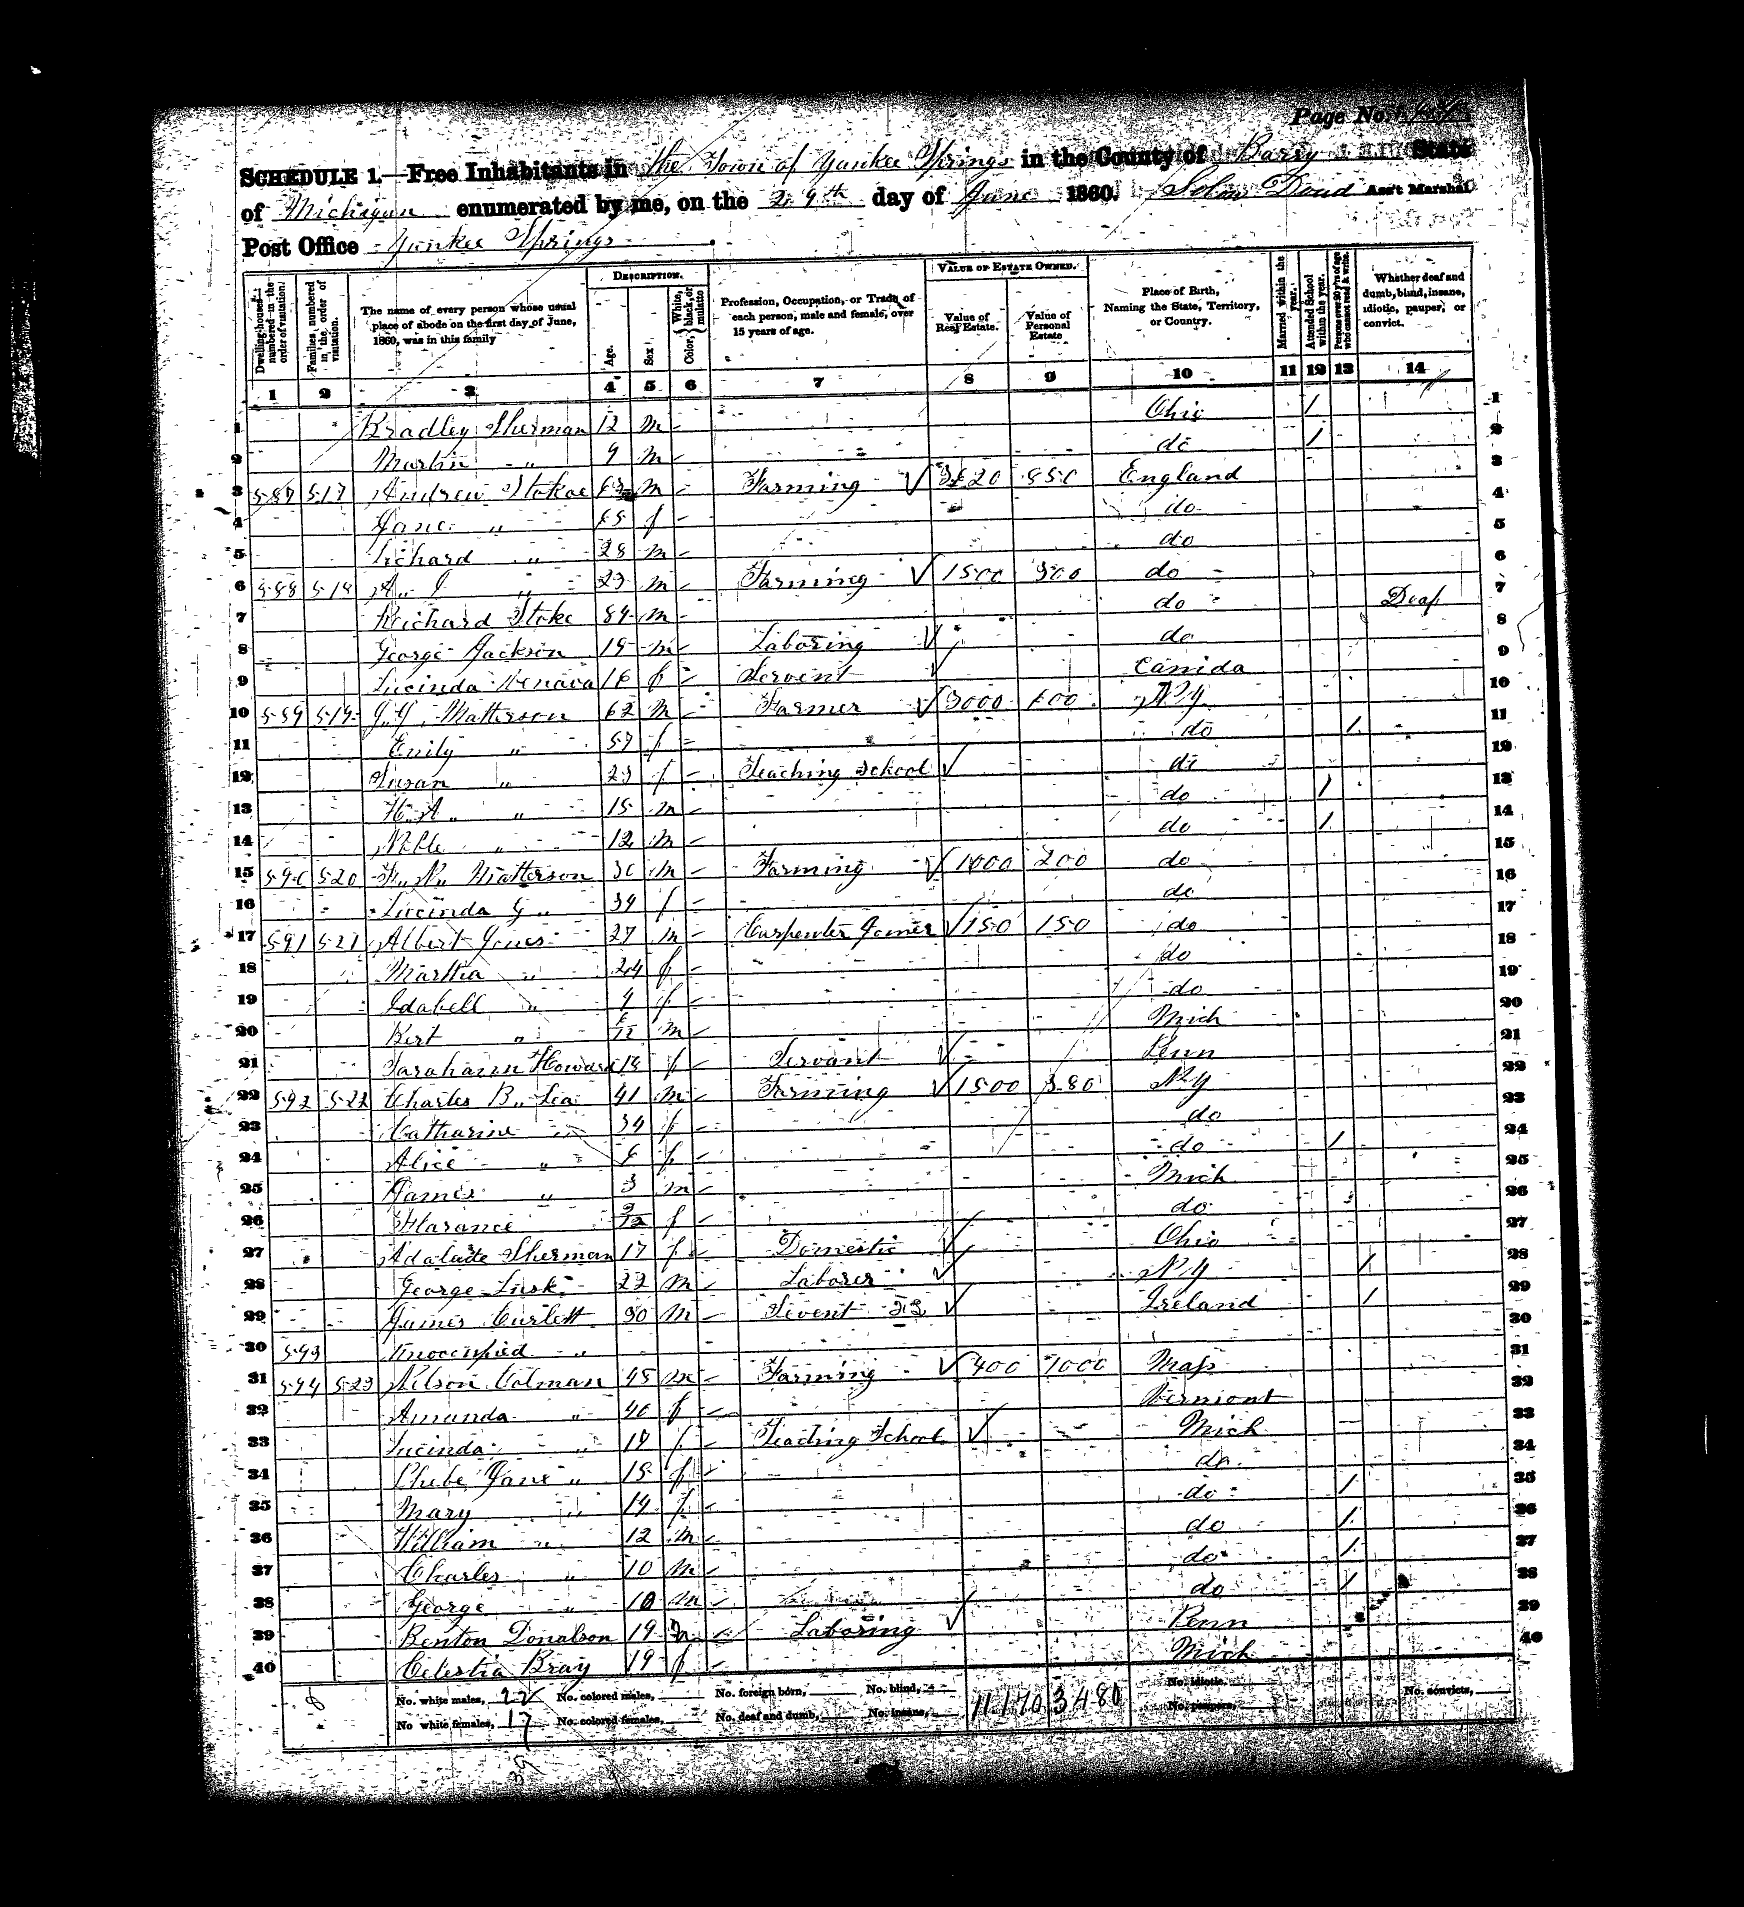 Page No.
SCHEDULE 1.—Free Inhabitants in the Town of Yankee Springs in the County of Barry State
of Michigan enumerated by me, on the 29th day of June 1860. Doud Ass't Marshal
Post Office Yankee Springs
Dwelling-houses numbered in the order of visitation. Families numbered in the order of visitation. The name of every person whose usual place of abode on the first day of June, 1860, was in this family DESCRIPTION. Age. Sex Color, White, black, or mulatto Profession, Occupation, or Trade of each person, male and female, over 15 years of age. VALUE OF ESTATE OWNED. Value of Real Estate. Value of Personal Estate Place of Birth, Naming the State, Territory, or Country. Married within the year. Attended School within the year. Persons over 20 y'rs of age who cannot read & write. Whether deaf and dumb, blind, insane, idiotic, pauper, or convict.
1 2 3 4 5 6 7 8 9 10 11 12 13 14
1 Bradley Sherman 12 m Ohio / 1
2 Martin " 9 m do / 2
3 587 517 Andrew Stokoe m Farming 850 England 3
4 Jane " 65 f do 4
5 Richard " 28 m do 5
6 588 518 A. J " 23 m Farming 1500 300 do 6
7 Reichard Stoke 84 m do Deaf 7
8 George Jackson 19 m Laboring do 8
9 Lucinda f Servent Canida 9
10 589 519 Matterson 62 m Farmer 3000 600 N.Y 10
11 Emily " 57 f do / 11
12 Susan " 23 f Teaching School do 12
13 H. A. " 15 m do / 13
14 " 12 m do / 14
15 590 520 Matterson 30 m Farming 1000 200 do 15
16 Lucinda G " 34 f do 16
17 591 521 Albert Jones 27 m Carpenter Joiner 150 150 do 17
18 Martha " 24 f do 18
19 Idabell " 4 f do 19
20 Bert " 6/12 m Mich 20
21 Sarahann Howard 18 f Servant Penn 21
22 592 522 Charles B. Lea 41 m Farming 1500 380 N.Y 22
23 Catharine " 34 f do 23
24 Alice " 6 f do / 24
25 James " 3 m Mich 25
26 Florance f do 26
27 Adalaide Sherman 17 f Domestic Ohio 27
28 George Lusk 22 m Laborer N.Y / 28
29 James Curlett 30 m Ireland / 29
30 593 Unoccupied " 30
31 594 523 Nelson Colman 48 m Farming 400 1000 Mass 31
32 Amanda " 40 f Vermont 32
33 Lucinda " 19 f Teaching School Mich 33
34 Phebe Jane " 15 f do 34
35 Mary " 14 f do / 35
36 William " 12 m do / 36
37 Charles " 10 m do / 37
38 George " 10 m do / 38
39 Benton Donalson 19 m Laboring Penn 39
40 Celestia Bray 19 f Mich 40
8 No. white males, 22 No. colored males, No. foreign born, No. blind, 11.170 3480 No. idiotic, No. convicts,
No white females, 17 No. colored females, No. deaf and dumb, No. insane, No. paupers,
39